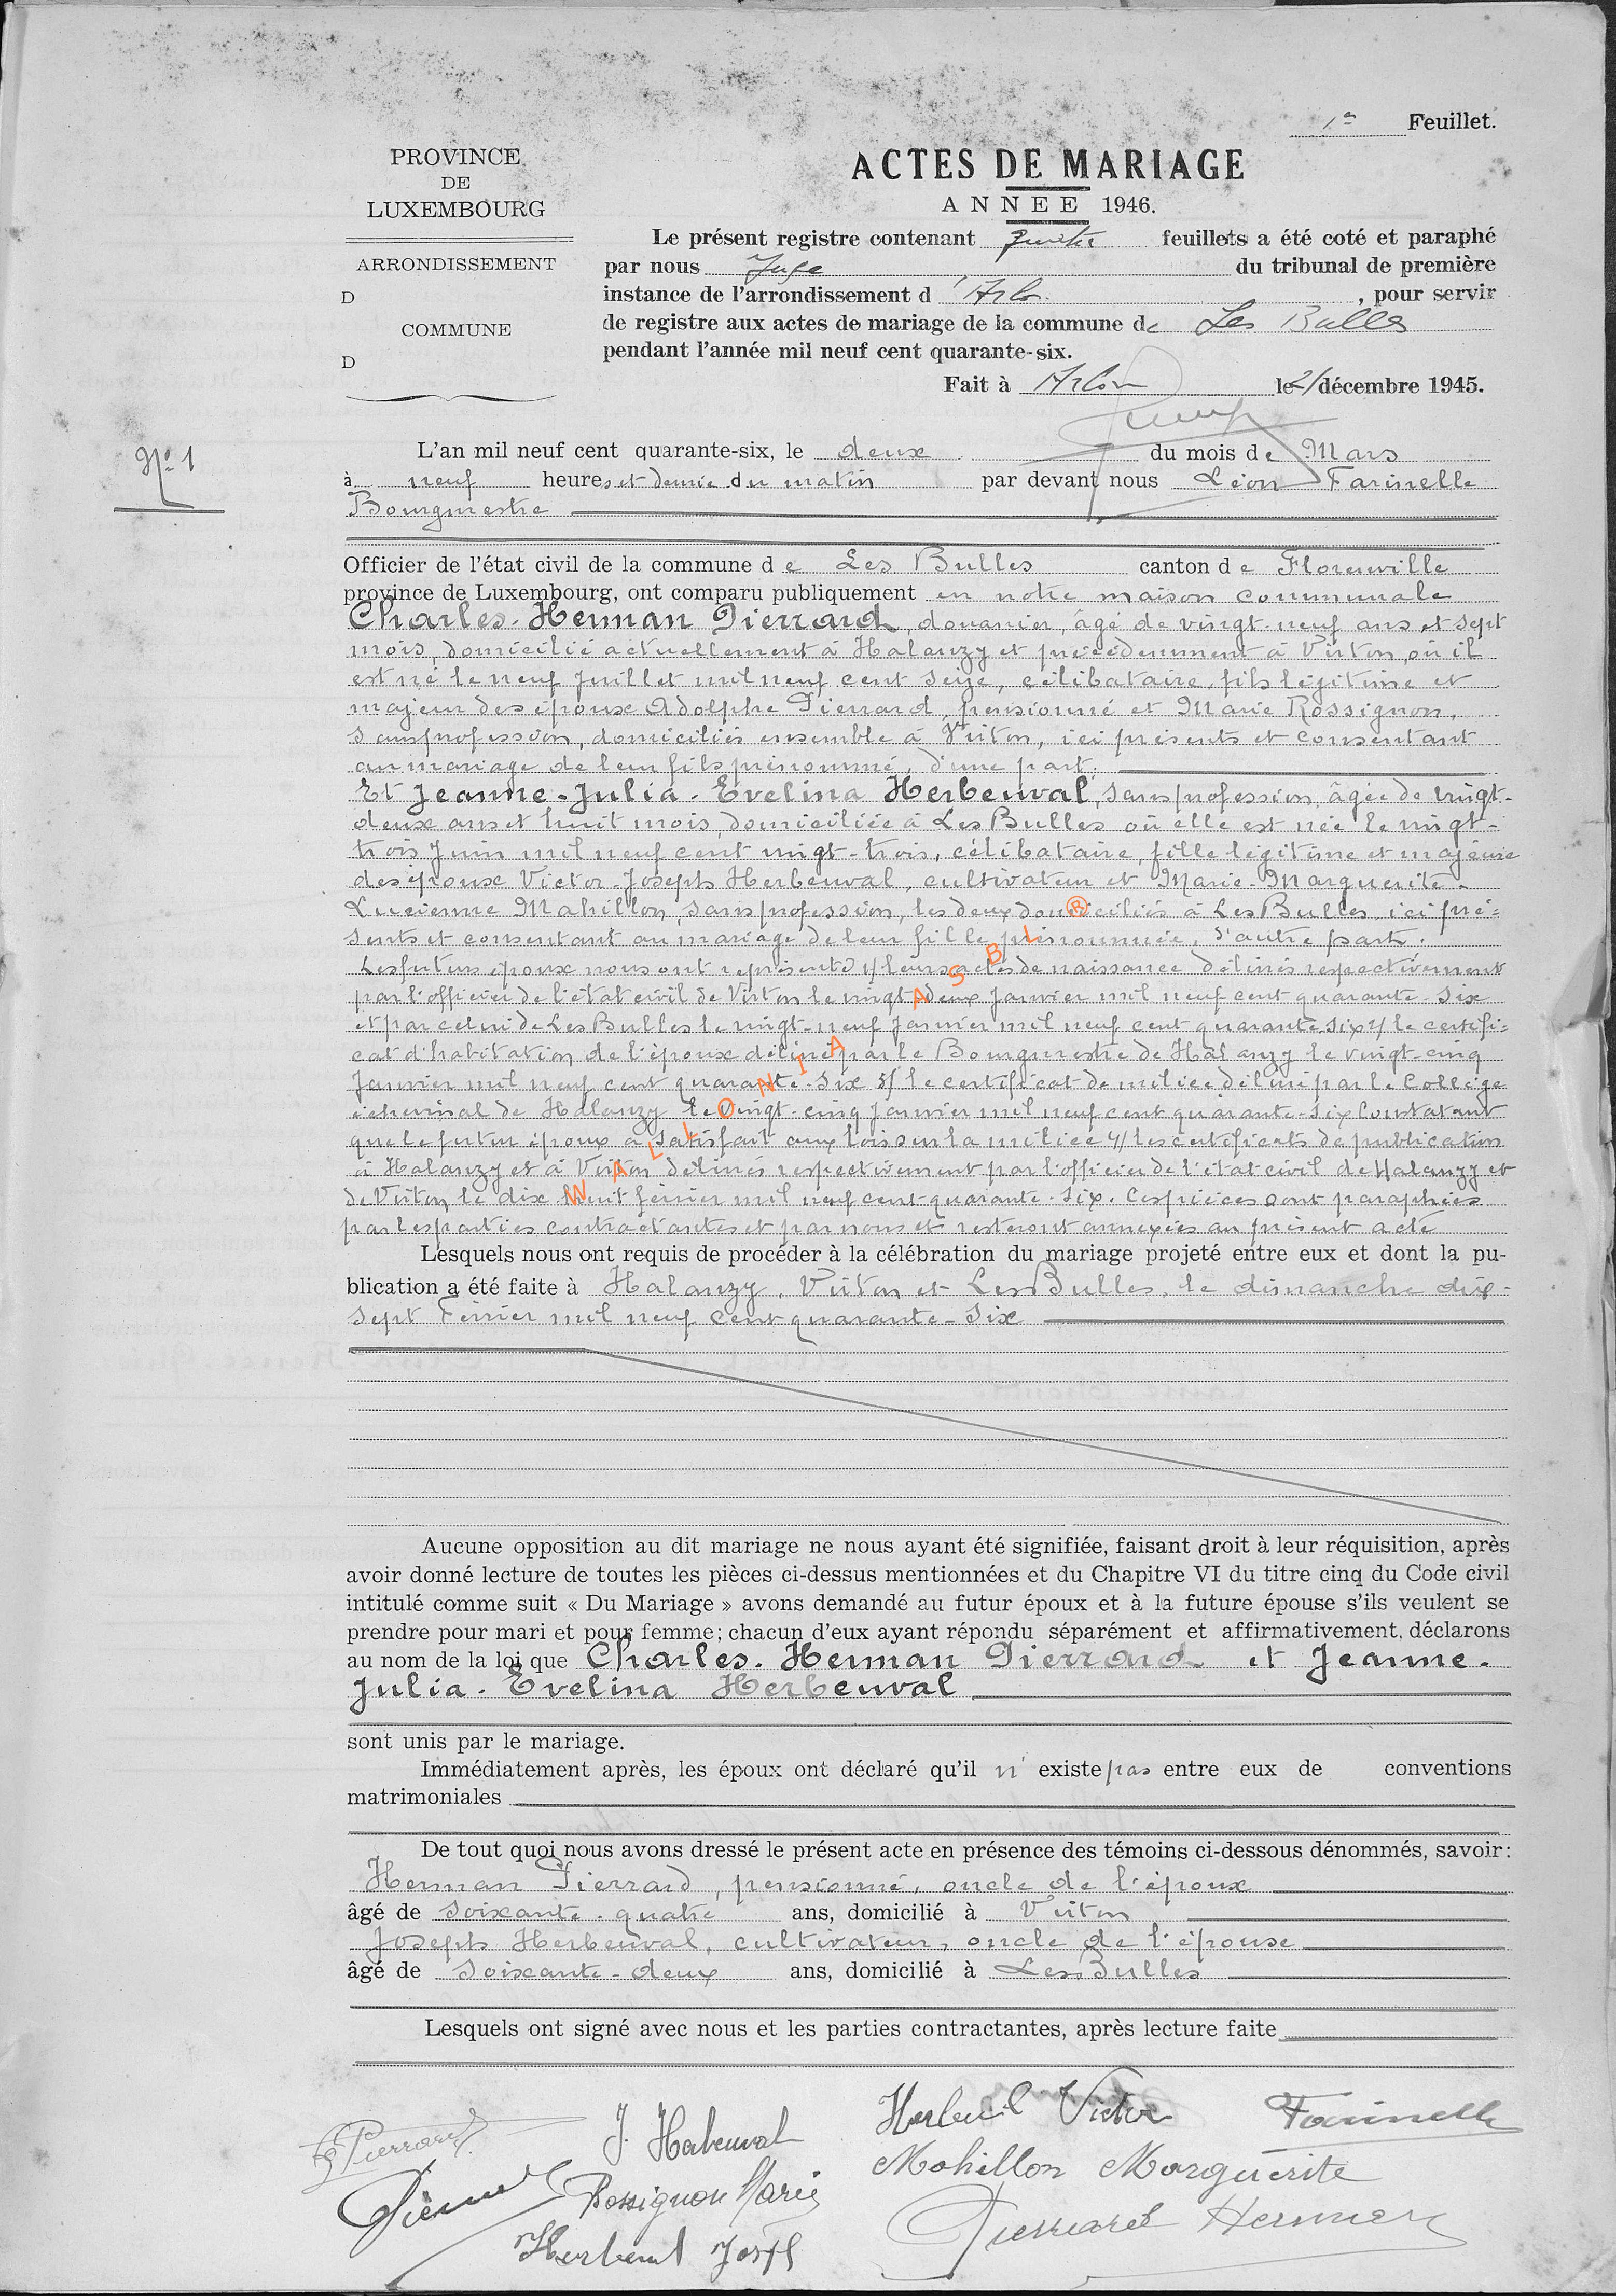 1er Feuillet.
PROVINCE
DE
LUXEMBOURG
ARRONDISSEMENT
D
COMMUNE
D
ACTES DE MARIAGE
ANNEE 1946.
Le présent registre contenant quatre feuillets a été coté et paraphé
par nous Juge du tribunal de première
instance de l'arrondissement d'Arlon, pour servir
de registre aux actes de mariage de la commune de Les Bulles
pendant l'année mil neuf cent quarante-six.
Fait à Arlon le 21 décembre 1945.
No 1
L'an mil neuf cent quarante-six, le deux du mois de Mars
à neuf heures et demie du matin par devant nous Léon Farinelle
Bourgmestre
Officier de l'état civil de la commune de Les Bulles canton de Florenville
province de Luxembourg, ont comparu publiquement en notre maison communale
Charles-Herman Pierrard, douanier, âgé de vingt-neuf ans et sept
mois, domicilié actuellement à Halanzy et précédemment à Virton, où il
est né le neuf juillet mil neuf cent seize, célibataire, fils légitime et
majeur des époux Adolphe Pierrard, pensionné et Marie Rossignon,
sans profession, domiciliés ensemble à Virton, ici présents et consentant
au mariage de leur fils prénommé, d'une part.
Et Jeanne-Julia-Evelina Herbeuval, sans profession, âgée de vingt-
deux ans et huit mois, domiciliée à Les Bulles où elle est née le vingt-
trois Juin mil neuf cent vingt-trois, célibataire, fille légitime et majeure
des époux Victor-Joseph Herbeuval, cultivateur et Marie-Marguerite-
Lucienne Mahillon, sans profession, les deux domiciliés à Les Bulles, ici pré=
sents et consentant au mariage de leur fille prénommée, d'autre part.
Les futurs époux nous ont représenté 1/ leurs actes de naissance délivrés respectivement
par l'officier de l'état civil de Virton le vingt-deux Janvier mil neuf cent quarante-six
et par celui de Les Bulles le vingt-neuf Janvier mil neuf cent quarante-six 2/ le certifi=
cat d'habitation de l'époux délivré par le Bourgmestre de Halanzy le vingt-cinq
Janvier mil neuf cent quarante-six 3/ le certificat de milice délivré par le Collège
échevinal de Halanzy le vingt-cinq Janvier mil neuf cent quarante-six constatant
que le futur époux a satisfait aux lois sur la milice 4/ les certificats de publication
à Halanzy et à Virton délivrés respectivement par l'officier de l'état civil de Halanzy et
de Virton, le dix-huit février mil neuf cent quarante-six. Ces pièces sont paraphées
par les parties contractantes et par nous et resteront annexées au présent acte
WALLONIA ASBL ®
Lesquels nous ont requis de procéder à la célébration du mariage projeté entre eux et dont la pu-
blication a été faite à Halanzy, Virton et Les Bulles, le dimanche dix-
sept Février mil neuf cent quarante-six
Aucune opposition au dit mariage ne nous ayant été signifiée, faisant droit à leur réquisition, après
avoir donné lecture de toutes les pièces ci-dessus mentionnées et du Chapitre VI du titre cinq du Code civil
intitulé comme suit « Du Mariage » avons demandé au futur époux et à la future épouse s'ils veulent se
prendre pour mari et pour femme; chacun d'eux ayant répondu séparément et affirmativement, déclarons
au nom de la loi que Charles-Herman Pierrard et Jeanne-
Julia-Evelina Herbeuval
sont unis par le mariage.
Immédiatement après, les époux ont déclaré qu'il n'existe pas entre eux de conventions
matrimoniales
De tout quoi nous avons dressé le présent acte en présence des témoins ci-dessous dénommés, savoir:
Herman Pierrard, pensionné, oncle de l'époux
âgé de soixante-quatre ans, domicilié à Virton
Joseph Herbeuval, cultivateur, oncle de l'épouse
âgé de soixante-deux ans, domicilié à Les Bulles
Lesquels ont signé avec nous et les parties contractantes, après lecture faite
Pierrard J. Herbeuval Victor Farinelle
Rossignon Marie Mahillon Marguerite
Joseph Pierrard Herman